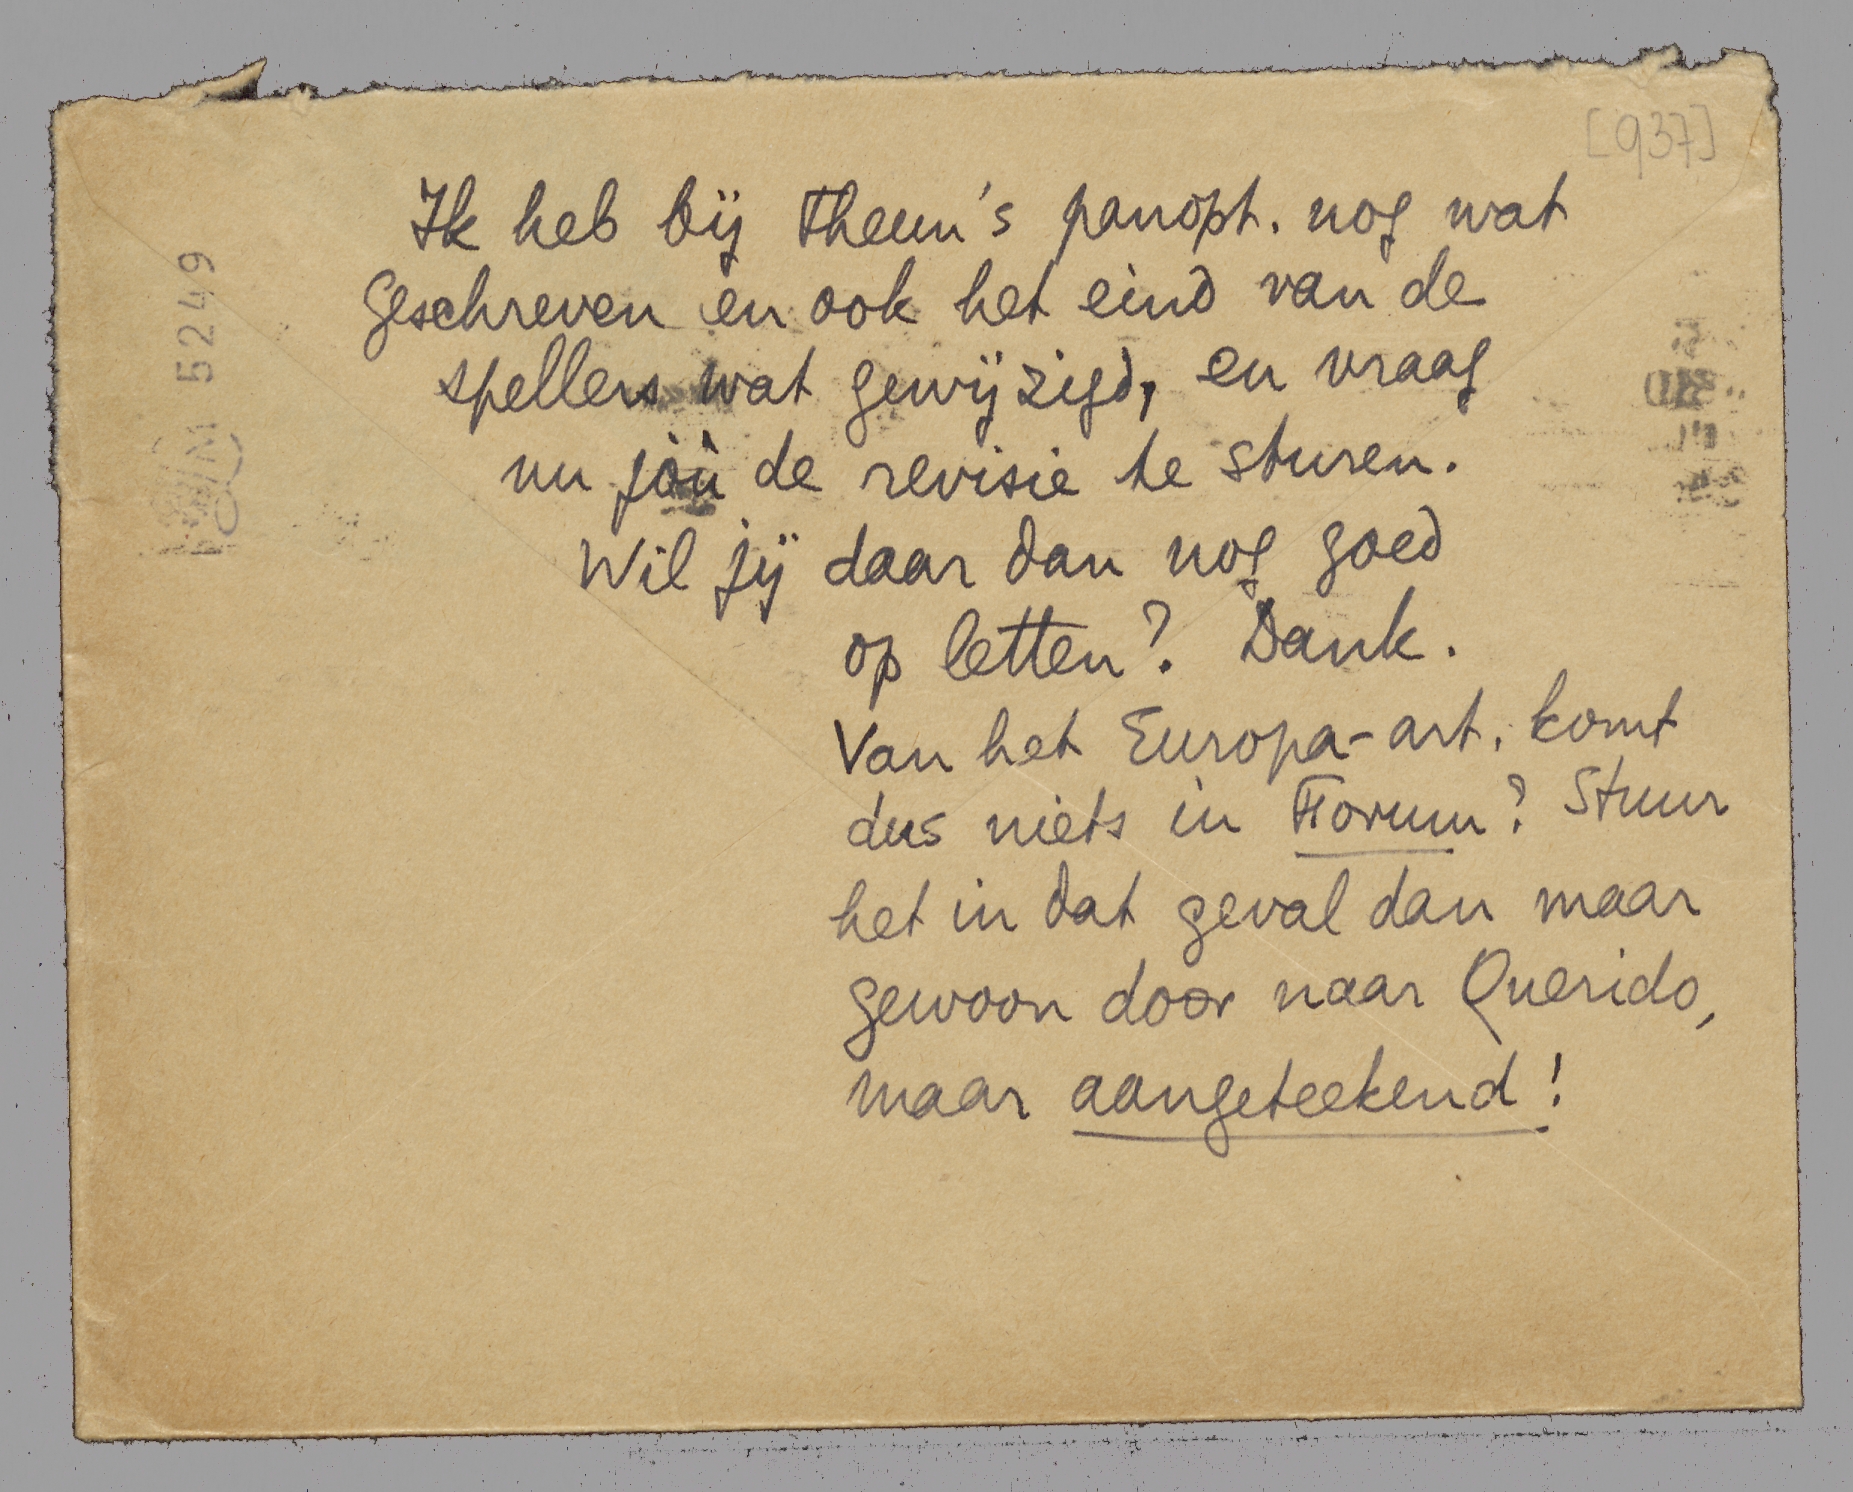 [937]
Ik heb bij Theun's panopt. nog wat
geschreven en ook het eind van de
spellers wat gewijzigd, en vraag
nu jòù de revisie te sturen.
Wil jij daar dan nog goed
op letten? Dank.
Van het Europa-art. komt
dus niets in Forum? Stuur
het in dat geval dan maar
gewoon door naar Querido,
maar aangeteekend!
5249